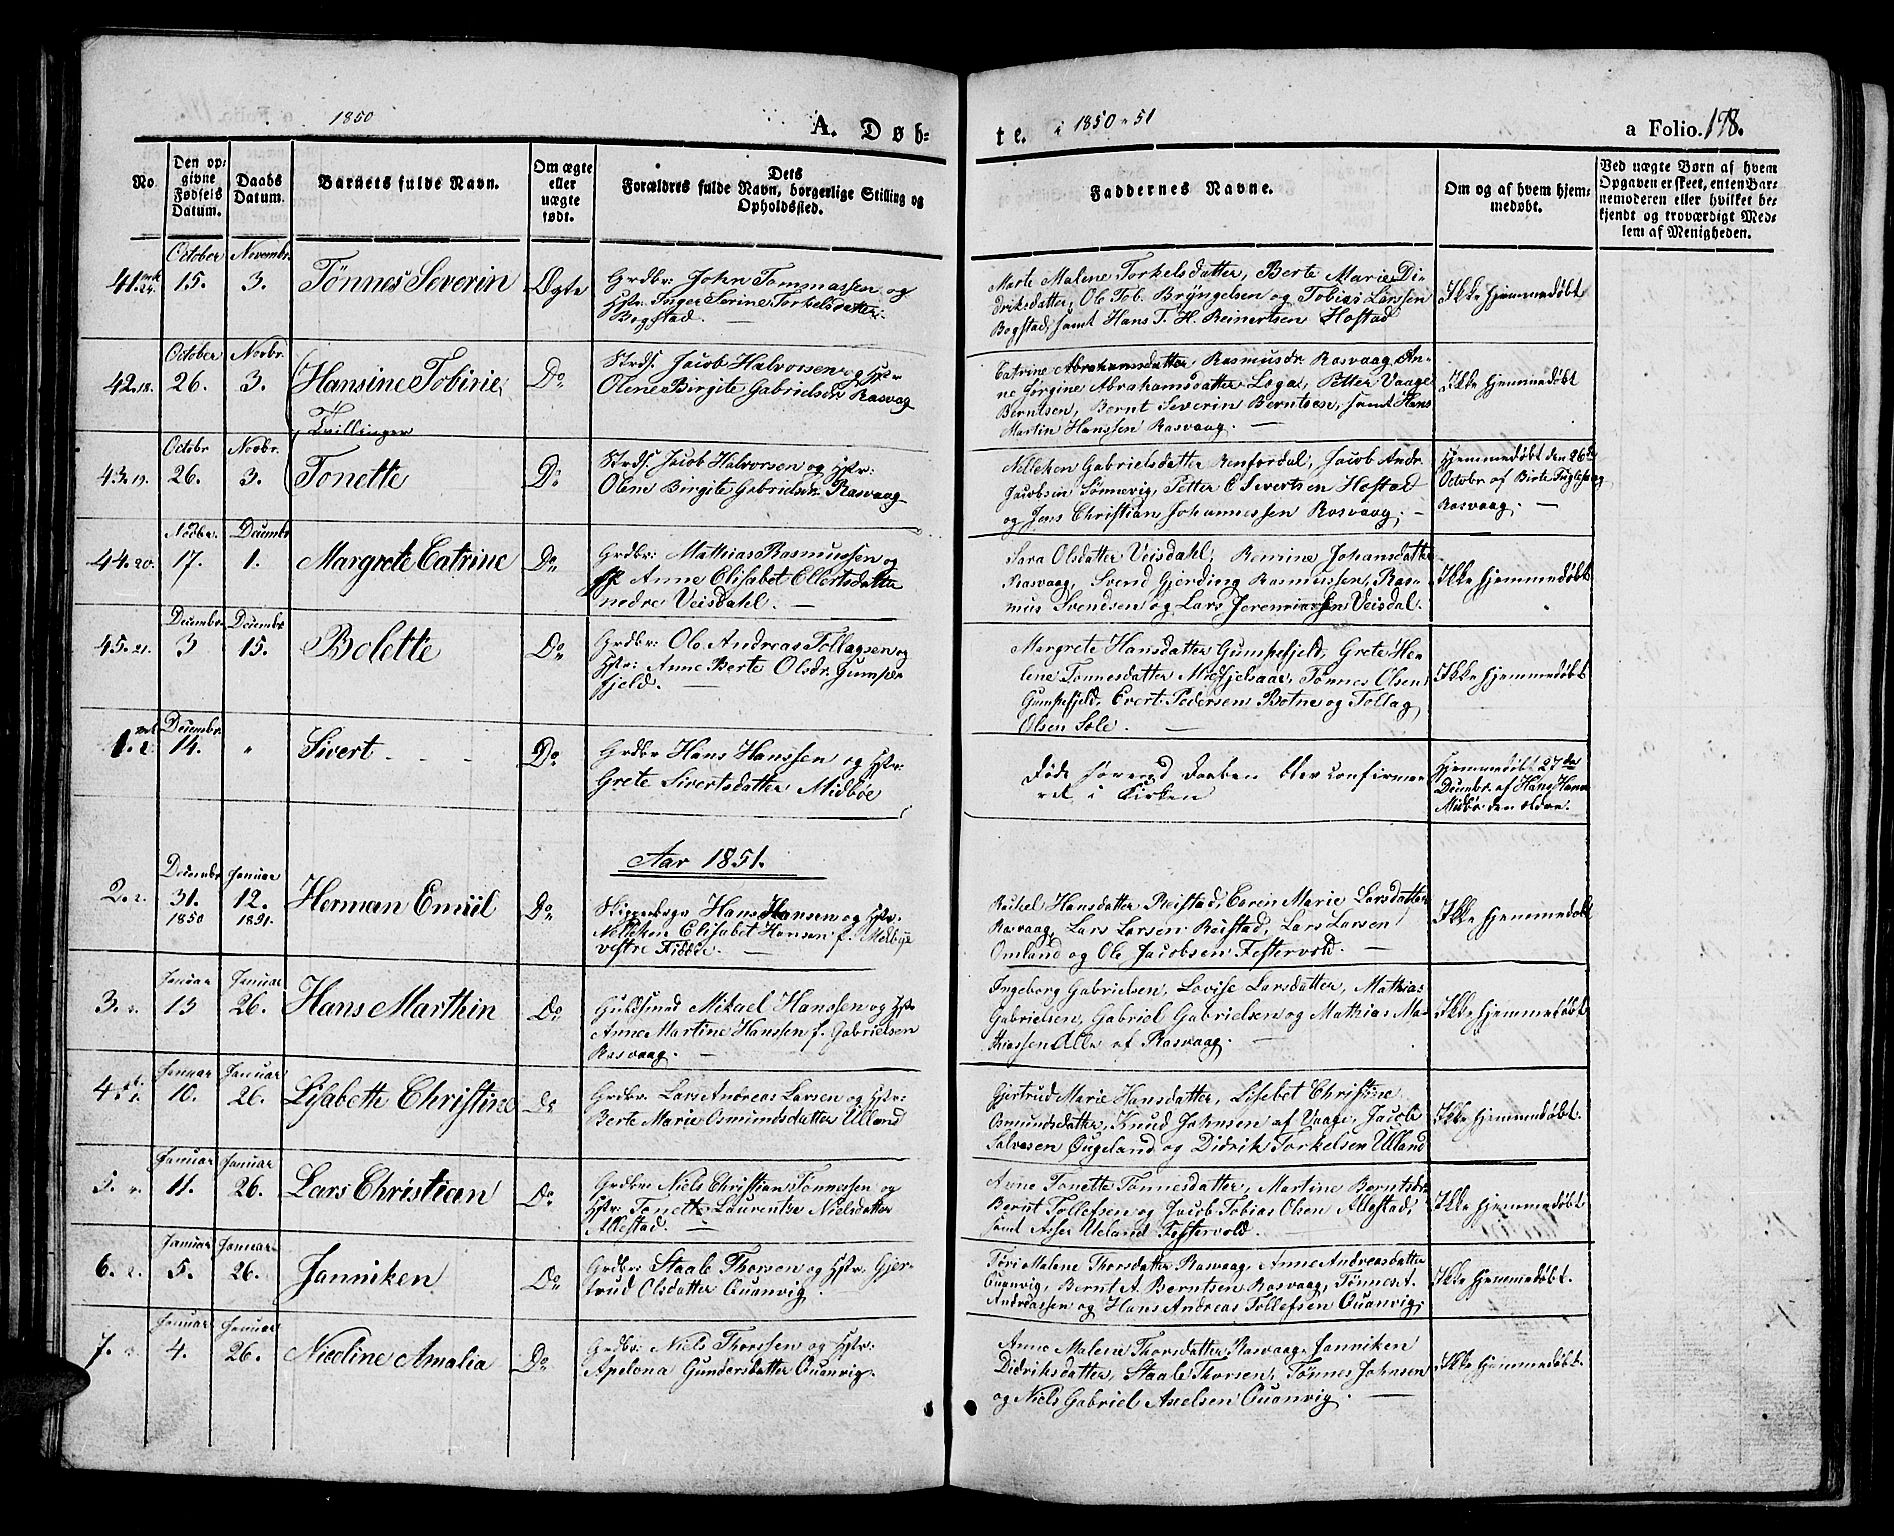 1850
A. Døb-
te. i 1850-51
a Folio. 198.
No.
Den op-
givne
Fødsels
Datum.
Daabs
Datum.
Barnets fulde Navn.
Om ægte
eller
uægte
født.
Dets
Forældres fulde Navn, borgerlige Stilling og
Opholdssted.
Faddernes Navne.
Om og af hvem hjem-
medøbt.
Ved uægte Børn af hvem
Opgaven er skeet, enten Bar-
nemoderen eller hvilket be-
kjendt og troværdigt Med-
lem af Menigheden.
October Novembr.
41. 24. 15. 3. Tønnes Severin Ægte
Grdbr: John Tommassen og
Hstr. Inger Serine Torkelsdatter
Bogstad. —
Marte Malene Torkelsdatter, Berte Marie Di-
driksdatter, Ol Tob. Bryngelsen og Tobias Larsen
Bogstad, samt Hans T. H. Reinertsen Hofstad
Ikke hjemmedøbt
October Novbr.
42. 18. 26. 3. Hansine Tobine Do
Tvillinger
Strds. Jacob Halvorsen og Hstr
Olene Birgite Gabrielsen Rasvaag
Catrine Abrahamsdatter, Rasmusdr. Rasvaag, An-
ne Jørgine Abrahamsdatter Loga, Petter Vaage
Berntsen, Bernt Severin Berntsen, samt Hans
Martin Hanssen Rasvaag. —
Ikke hjemmedøbt
Octobr Novbr.
43. 19. 26. 3. Tonette Do
Strds. Jacob Halvorsen og Hstr:
Olene Birgite Gabrielsen Rasvaag
Nilleken Gabrielsdatter Renfordal, Jacob Andr.
Jacobsen Sønnevig, Petter E Sivertsen Hofstad
og Jens Christian Johannessen Rasvaag. —
Hjemmedøbt den 26de
Octobr af Birte
Rasvaag. —
Novbr. Decembr
44. 20. 17. 1. Margrete Catrine Do
Grdbr: Mathias Rasmussen og
Anne Elisabet Ellertsdatter
nedre Veisdahl. —
Sara Olsdatter Veisdahl, Remine Johansdatter
Rasvaag, Svend Gjerding Rasmussen, Ras-
mus Svendsen og Lars Jeremiassen Veisdal.
Ikke hjemmedøbt
Decembr Decembr
45. 21. 3 15. Bolette Do
Grdbr: Ole Andreas Tollagsen og
Hstr: Anne Berte Olsdr. Gumpe-
fjeld. —
Margrete Hansdatter Gumpefjeld, Grete He-
lene Tønnesdatter Midfjelsaar, Tønnes Olsen
Gumpefjeld, Evert Pedersen Botne og Tollag
Olsen Sole. —
Ikke hjemmedøbt
Decembr
1. 14. " Sivert - - - Do
Grdbr Hans Hanssen og Hstr:
Grete Sivertsdatter Midbøe
Døde førend Daaben blev confirme-
ret i Kirken
Hjemmedøbt 27de
Decembr. af Hans Hans
Midbø den ældre.
Aar 1851.
Decembr Januar
2. 2. 31. 12. Herman Emiil Do
1850 1851.
Skipperbgr Hans Hansen og Hstr:
Nilleken Elisabet Hansen f. Medbye
vestre Fidøe. —
Rakel Hansdatter Reistad, Caren Marie Larsdatter
Rasvaag, Lars Larsen Reistad, Lars Larsen
Omland og Ole Jacobsen Festervold. —
Ikke hjemmedøbt
Januar Januar
3. 13 26. Hans Marthin Do
Guldsmed Mikael Hanssen og Hstr
Anne Martine Hanssen f. Gabrielsen
Rasvaag. —
Ingeborg Gabrielsen, Lovise Larsdatter, Mathias
Gabrielsen, Gabriel Gabrielsen og Mathias Ma-
thiassen Alle af Rasvaag. —
Ikke hjemmedøbt
Januar Januar
4. 10. 26. Lisabeth Christine Do
Grdbr. Lars Andreas Larsen og Hstr:
Berte Marie Osmundsdatter Ulland
Gjertrud Marie Hansdatter, Lisebet Christine
Osmundsdatter, Knud Johnsen af Vaage, Jacob
Salvesen Ougeland og Didrik Torkelsen Ulland
Ikke hjemmedøbt.
Januar Januar
5. 11. 26. Lars Christian Do
Grdbr: Niels Christian Tønnessen og
Hstr: Tonette Laurentze Nielsdatter
Allestad. —
Anne Tonette Tønnesdatter, Martine Berntsdr.
Bernt Tollefsen og Jacob Tobias Olsen Allestad,
samt Asser Ueland Festervold.
Ikke hjemmedøbt
Januar Januar
6. 5. 26. Janniken Do
Grdbr: Staale Thorsen og Hstr. Gjer-
trud Olsdatter Quanvig. —
Tori Malene Thorsdatter Rasvaag, Anne Andreasdatter
Quanvig, Bernt A. Berntsen Rasvaag, Tønnes A.
Andreassen og Hans Andreas Tollefsen Quanvig.
Ikke hjemmedøbt.
Januar Januar
7. 4. 26. Nicoline Amalia Do
Grdbr: Niels Thorssen og Hstr:
Apelona Gundersdatter Quanvig.
Anne Malene Thorsdatter Rasvaag, Janniken
Didriksdatter, Staale Thorsen, Tønnes Johnsen
og Niels Gabriel Axelsen Quanvig. —
Ikke hjemmedøbt